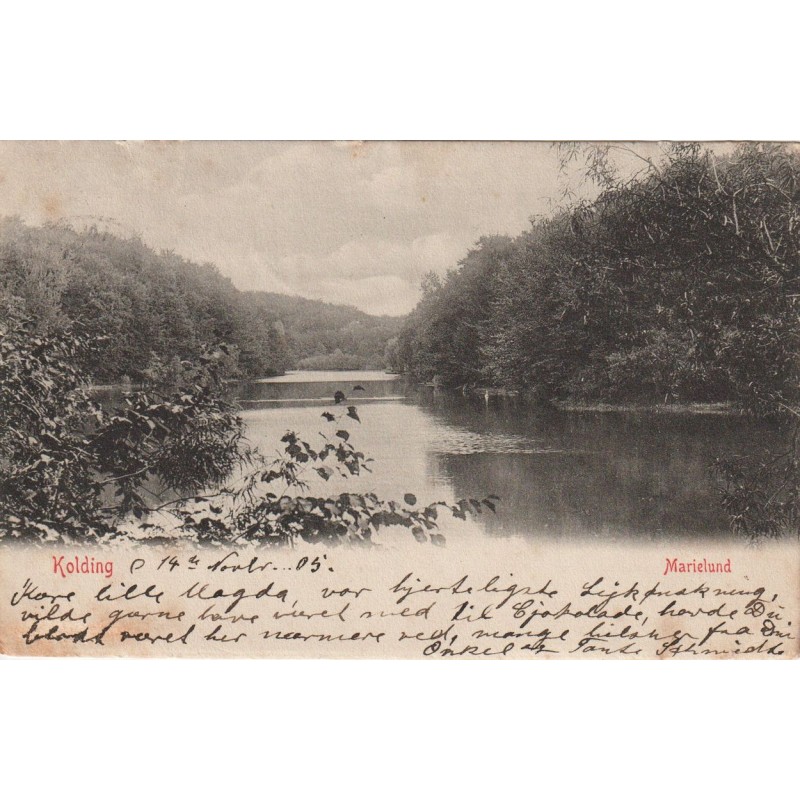 Kolding d 14de Novbr....05. Marielund
Kære lille Magda, vor hjerteligste Lykønskning,
vilde gærne have været med til Cjokolade, havde Du
blodt været her nærmere ved, mange hilsner fra Din
Onkel at Tante Schmidt